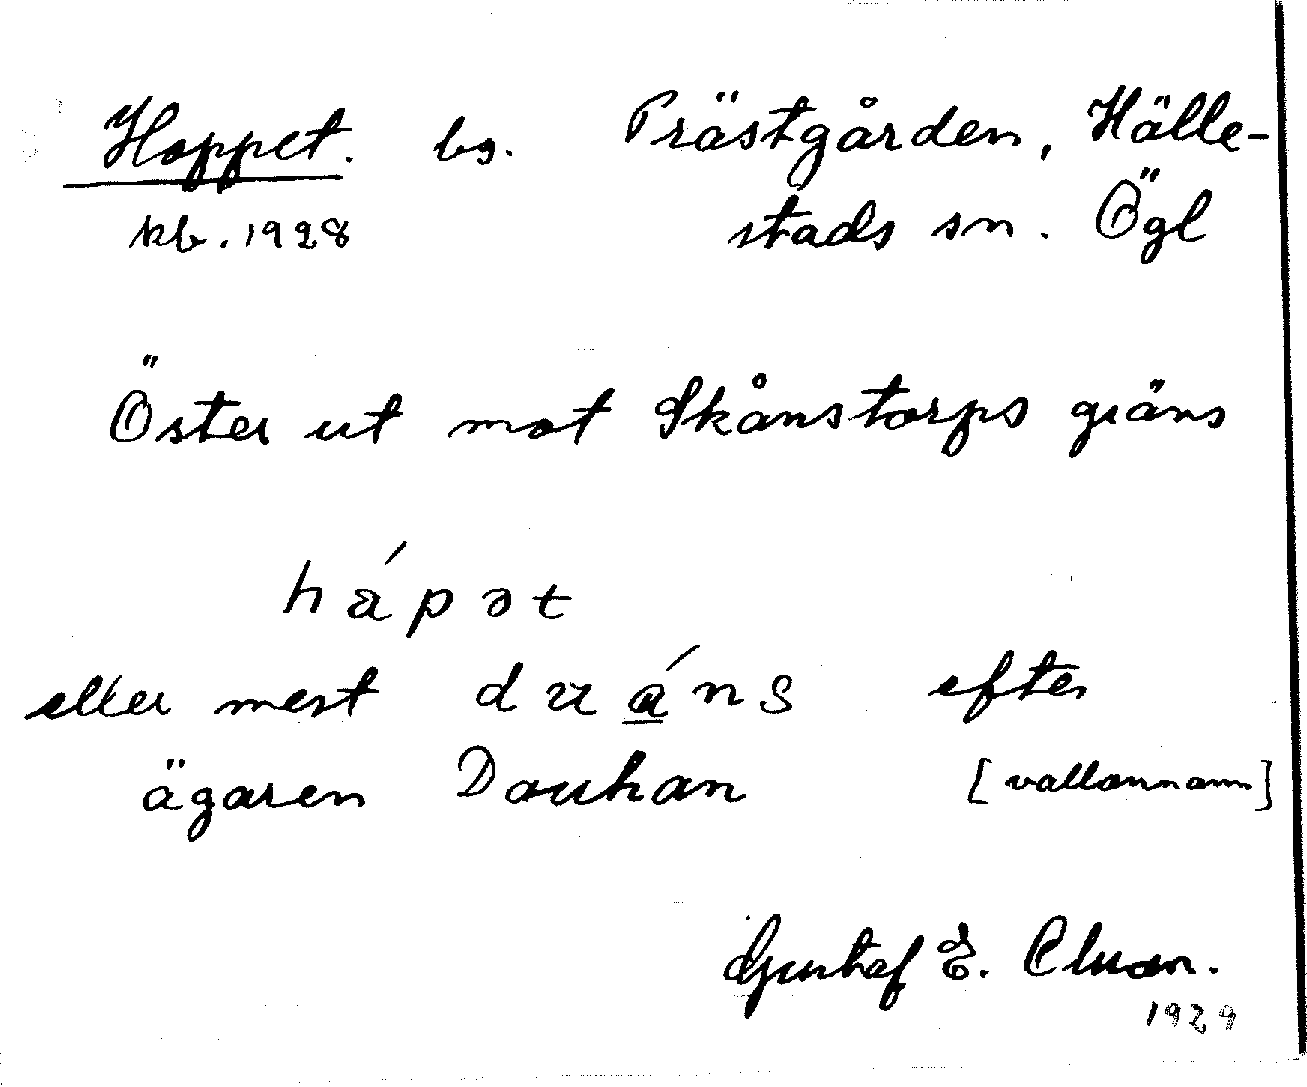 Hoppet. bg. Prästgården, Hälle-
kb. 1928 stads sn. Ögl
Öster ut mot Skånstorps gräns
hápət
eller mest duáns efter
ägaren Douhan [vallonnamn]
Gustaf E. Clason.
1929